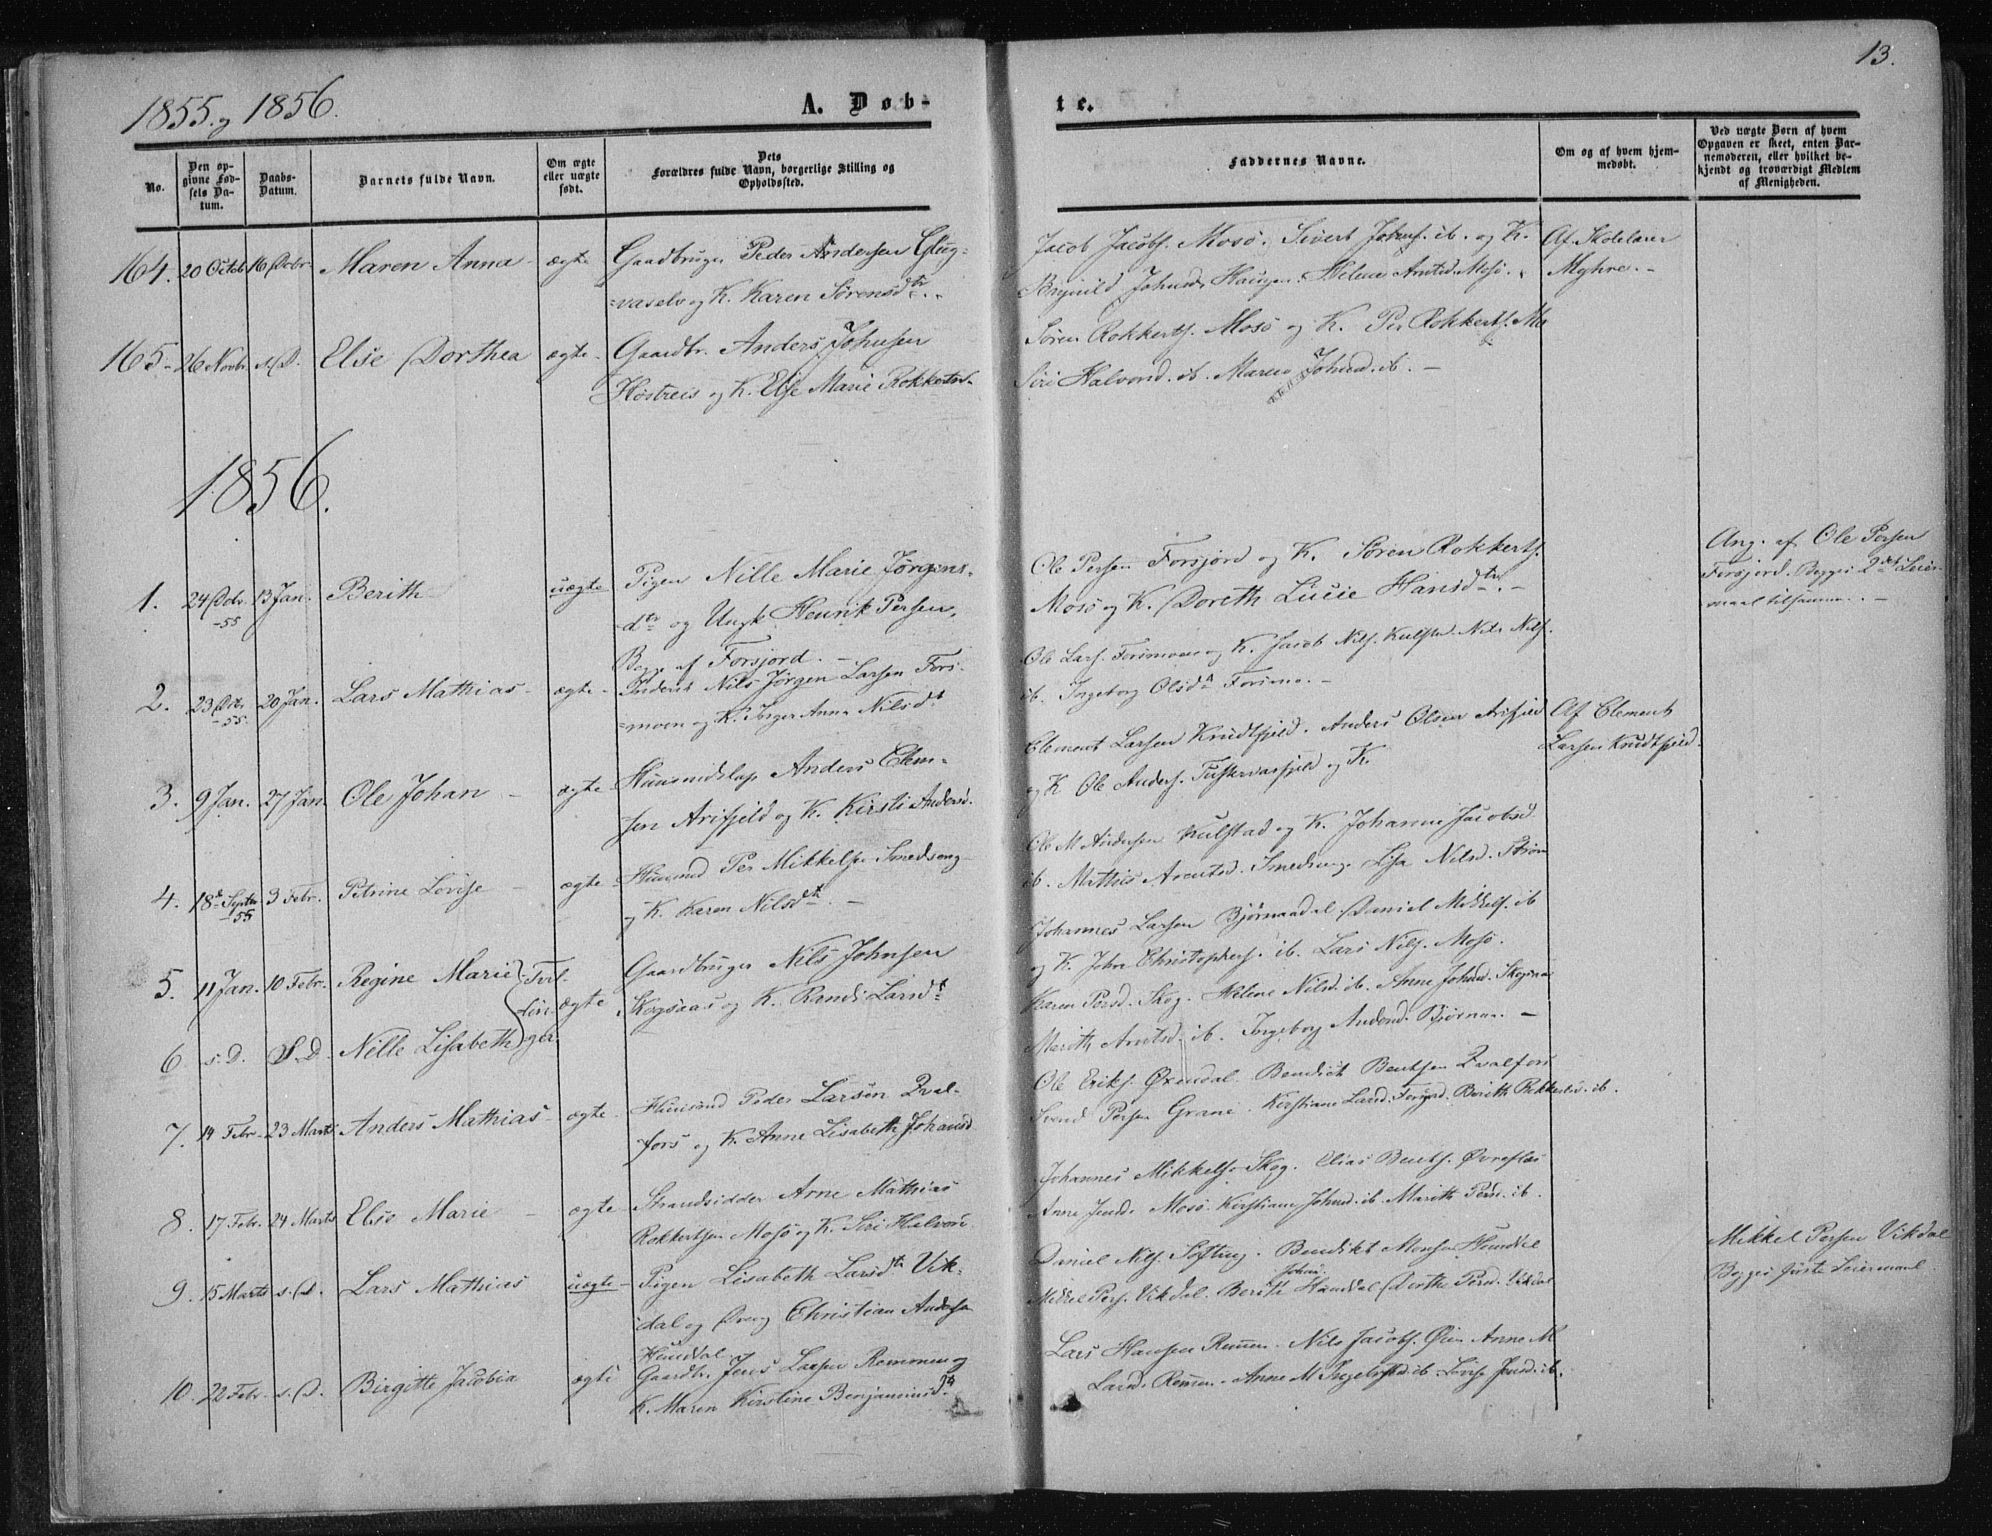 13.
1855. og 1856.
A. Døb-
te.
No.
Den opgivne Fødsels Datum.
Daabs-Datum.
Barnets fulde Navn.
Om ægte eller uægte født.
Dets Forældres fulde Navn, borgerlige Stilling og Opholdssted.
Faddernes Navne.
Om og af hvem hjemmedøbt.
Ved uægte Børn af hvem Opgaven er skeet, enten Barnemoderen, eller hvilket bekjendt og troværdigt Medlem af Menigheden.
164. 20 Octob 16 Decbr. Maren Anna - ægte Gaardbruger Peder Andersen Glug-
=vaselv og K. Karen Sørensdtr.
Jacob Jacobs. Mosø. Sivert Johns. ib. og K.
Brynild Johnsd. Haugen. Helene Arntsd. Mosø.
Af Skolelærer
Myhre. -
165- 26 Novbr. s. D. Else Dorthea ægte- Gaardbr. Anders Johnsen
Høstreis og K. Else Marie Rokkertsd.
Søren Rokkerts. Mosø og K. Per Rokkerts. Mo
Siri Halvorsd. ib. Maren Johnsd. ib. -
1856.
1. 24 Decbr. -55 13 Jan. Berith uægte Pigen Nille Marie Jørgens-
dtr og Ungk. Henrik Persen,
Begge af Forsjord. -
Ole Persen Forsjord og K. Søren Rokkerts.
Mosø og K. Doreth Lucie Hansdtr. -
Ang. af Ole Persen
Forsjord. Begges 2det Leier-
maal tilsammen. -
2. 23 Decbr. -55. 20 Jan. Lars Mathias - ægte- Inderst Nils Jørgen Larsen Fors-
=moen og K. Inger Anna Nilsdt
Ole Lars. Forsmoen og K. Jacob Nils. Kulstad. Nils Nils.
ib. Ingeborg Olsdt Forsmo. -
3. 9 Jan. 27 Jan. Ole Johan - ægte- Huusmdskap Anders Clem-
sen Arifjeld og K. Kirsti Andersd.
Clement Larsen Knudtfjeld. Anders Olsen Arifjeld
og K Ole Anders. Tustervasfjeld og K.
Af Clement
Larsen Knudtfjeld.
4. 18de Septbr -55 3 Febr. Petrine Lovise - ægte Huusmd Per Mikkelse Smedseng
og K. Karen Nilsdt. -
Ole M Andersen Kulstad og K. Johanne Jacobsd.
ib. Mathis Arntsd. Smedseng. Lisa Nilsd. Strøm
5. 11 Jan. 10 Febr. Regine Marie Tvil- Gaardbruger Nils Johnsen
lin- ægte Skogsaas og K. Randi Larsdt
6 s. D. S. D. Nille Lisabeth ger.
Johannes Larsen Bjørnaadal. Daniel Mikkels. ib
og K. John Christophers. ib. Lars Nils. Mosø.
Karen Persd. Skog. Helene Nilsd. ib. Anne Johnsd. Skogsaas
Marith Arntsd. ib. Ingeborg Andersd. Bjørnaa. -
7. 14 Febr. 23 Marts Anders Mathias - ægte- Huusmd Peder Larsen Qval-
fors og K. Anne Lisabeth Johansd
Ole Eriks. Øxendal. Bendict Bentsen Qvalfors
Svend Persen Grane. Kirstiane Larsd. Forsjord. Berith Rokkertsd. ib.
8. 17 Febr. 24 Marts Else Marie - ægte- Strandsidder Arne Mathias
Rokkertsen Mosø og K. Siri Halvors.
Johannes Mikkels. Skog. Elias Bents. Øvreflos
Anne Jensd. Mosø. Kirstiane Johnsd. ib. Marith Persd. ib.
9. 15 Marts s. D. Lars Mathias uægte- Pigen Lisabeth Larsdtr Vik-
dal og Christian Andersen
Hunddal
Daniel Nils. Søfting. Bendikt Monsen Hunddal
Mikkel Pers. Vikdal. Berith Johns. Hunddal Dorthe Persd. Vikdal
Mikkel Persen Vikdal
Begges første Leiermaal.
10. 22 Febr. s. D. Birgitte Jacobia ægte Gaardbr. Jens Larsen Remmen og
K. Maren Kirstine Benjaminsdtr.
Lars Hansen Remen. Nils Jacobs. Øien Anne M
Larsd. Remen. Anne M. Ingebrigtsd. ib. Lovise Jensd. ib.